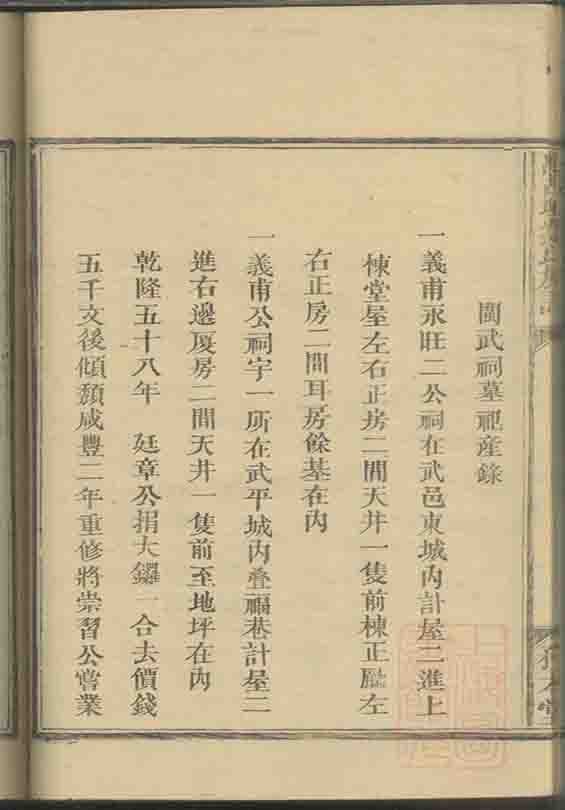 閩武祠墓祀產錄
一義甫永旺二公祠在武邑東城內計屋二進上
棟堂屋左右正房二間天井一隻前棟正廳左
右正房二間耳房餘基在內
一義甫公祠宇一所在武平城內叠福巷計屋二
進右邊厦房二間天井一隻前至地坪在內
乾隆五十八年 廷章公捐大鑼一合去價錢
五千文後傾頹咸豐二年重修將崇習公嘗業